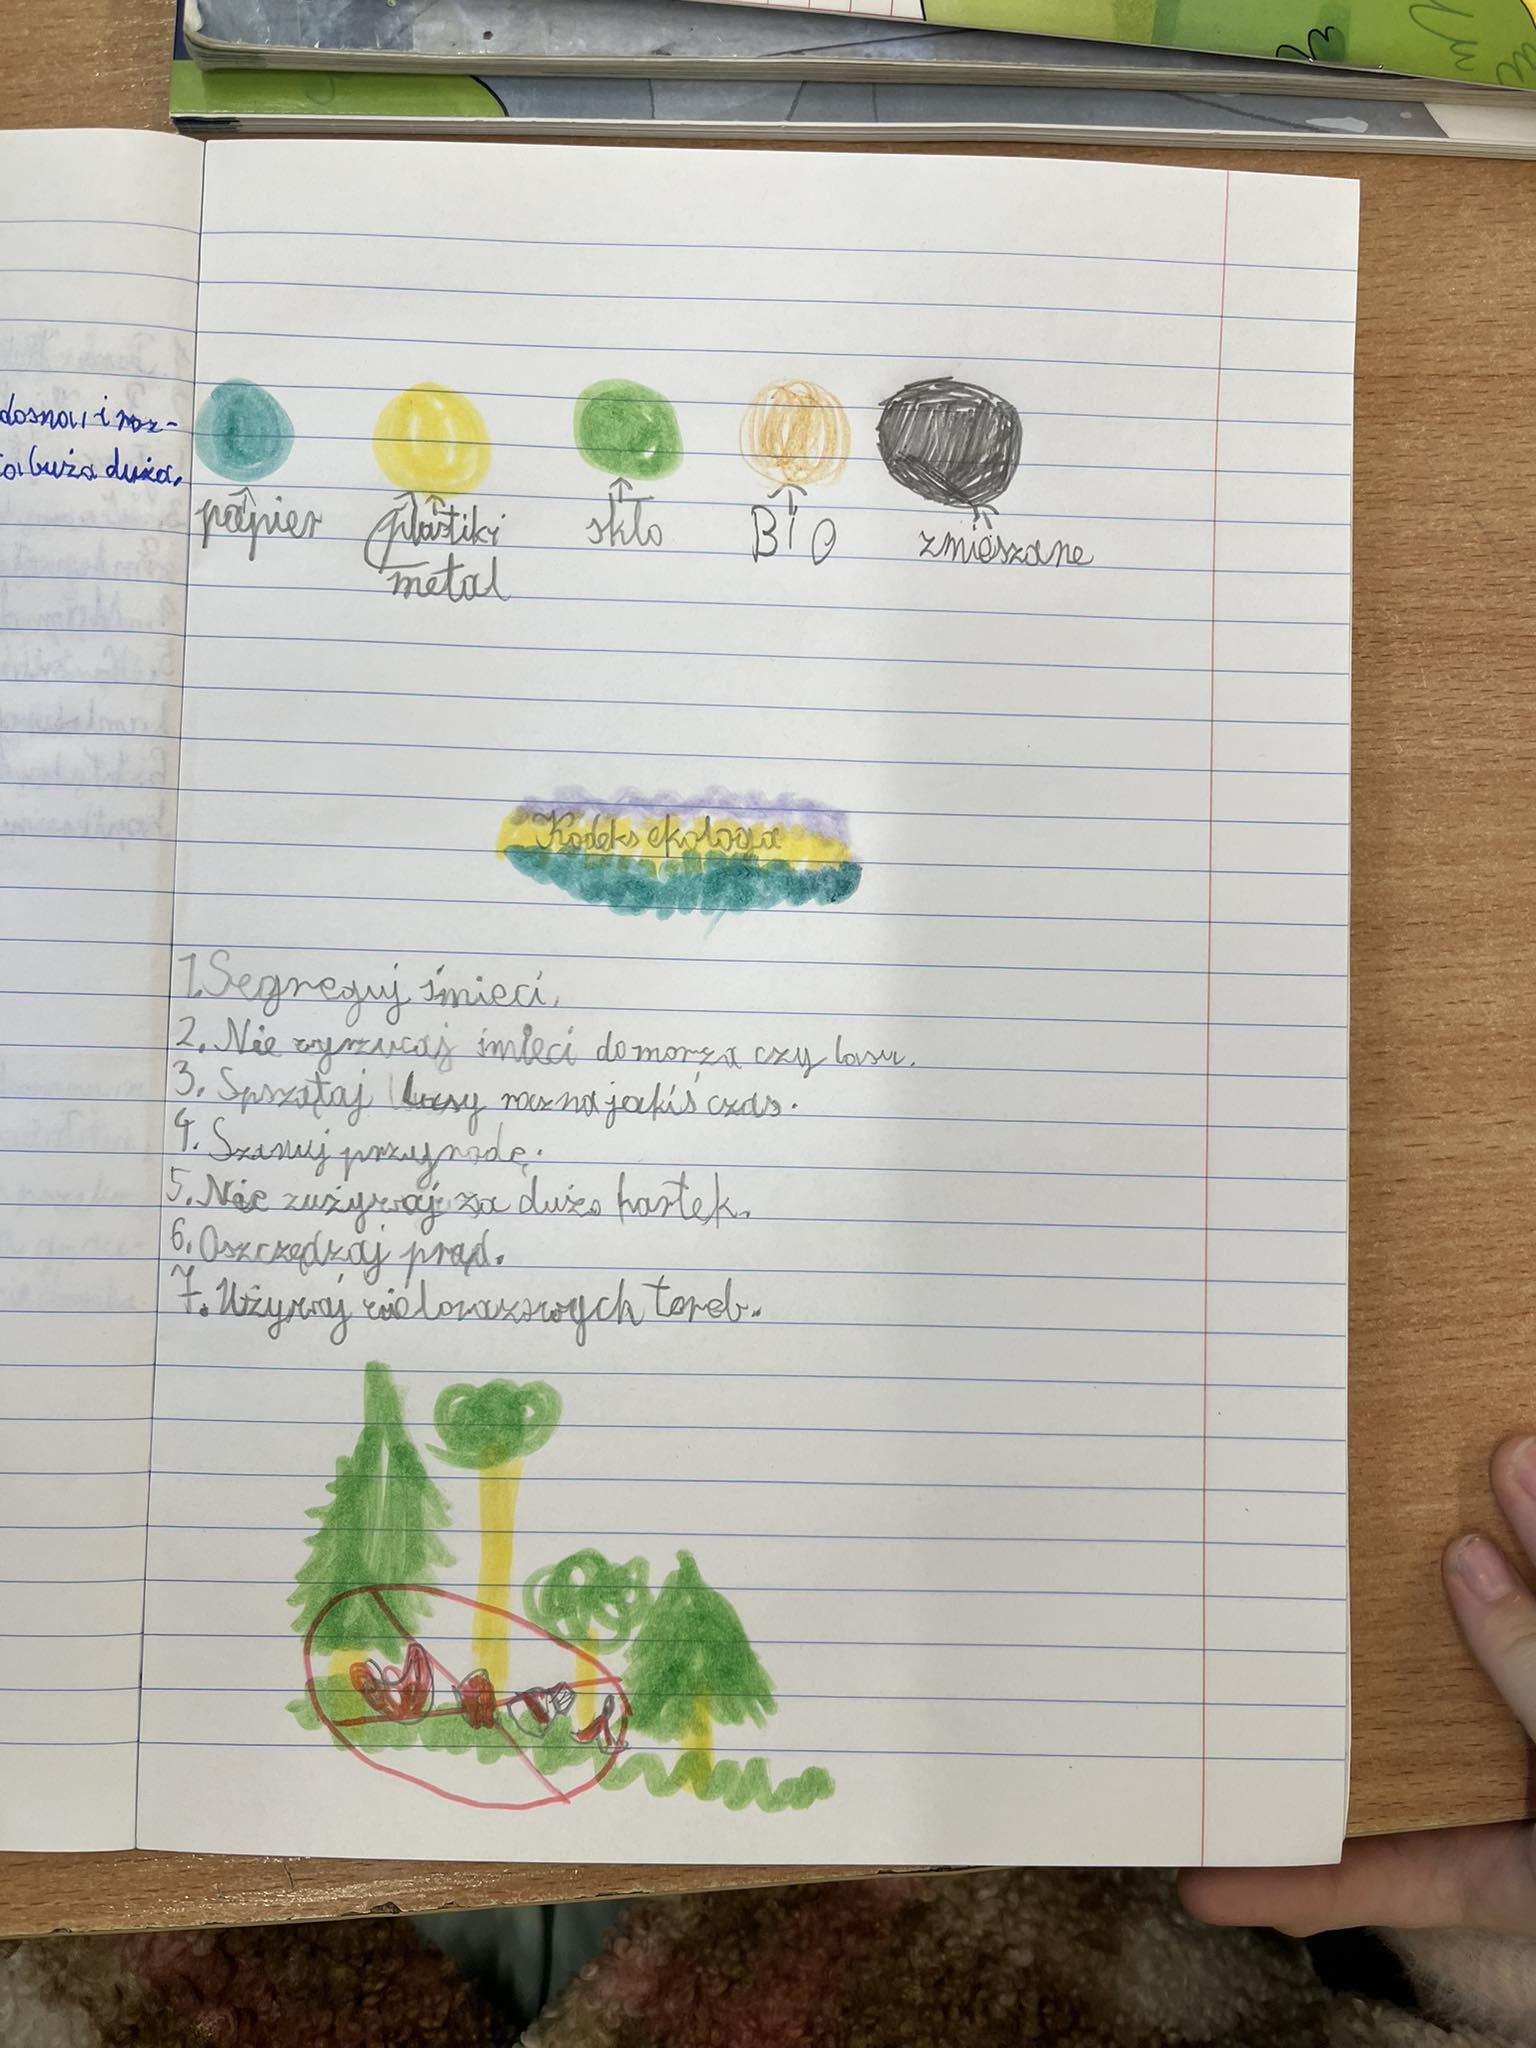 dosna, i roz-
buża duża.
papier
plastiki
metal
skło
BIO
zmieszane
Kodeks ekologa
1. Segreguj śmieci.
2. Nie wyrzucaj śmieci do morza czy lasu.
3. Sprzątaj lasy raz na jakiś czas.
4. Szanuj przyrodę.
5. Nie zużywaj za dużo kartek.
6. Oszczędzaj prąd.
7. Używaj wielorazowych toreb.